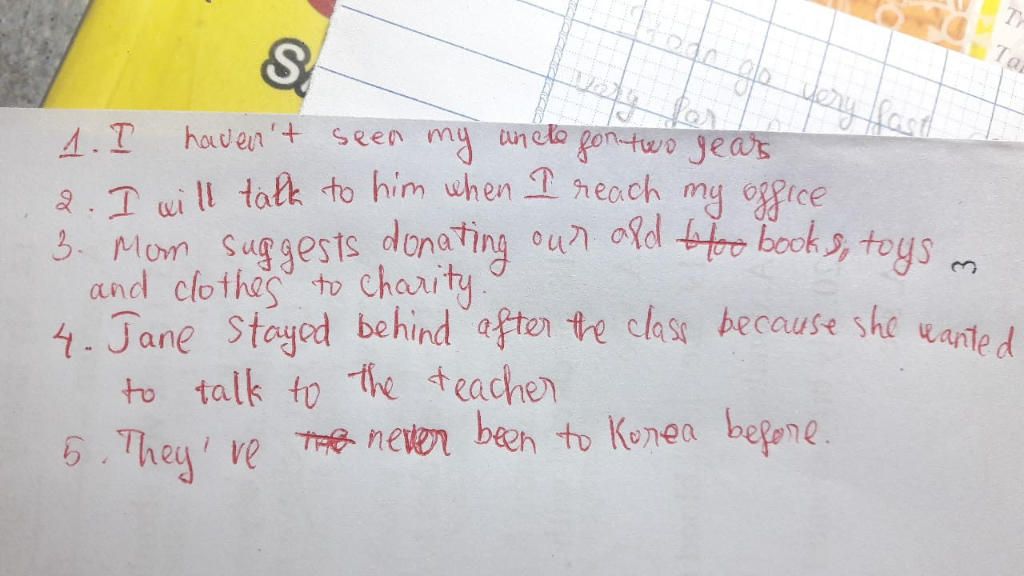 S
Tr
Tai
go very fast
very far
1. I haven't seen my uncle for two years
2. I will talk to him when I reach my office
3. Mom suggests donating our old books, toys
and clothes to charity.
4. Jane Stayed behind after the class because she wanted
to talk to the teacher
5. They've never been to Korea before.